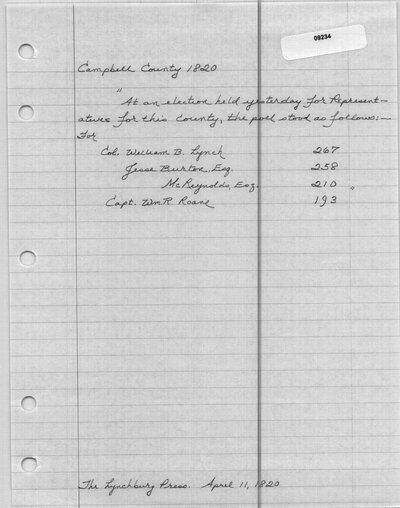 09234
Campbell County 1820
"At an election held yesterday for Represent-
atives for this County, the poll stood as follows:-
For
Col. William B. Lynch 267
Jesse Burton, Esq. 258
McReynolds, Esq. 210 "
Capt. Wm. R. Roane 193
The Lynchburg Press. April 11, 1820